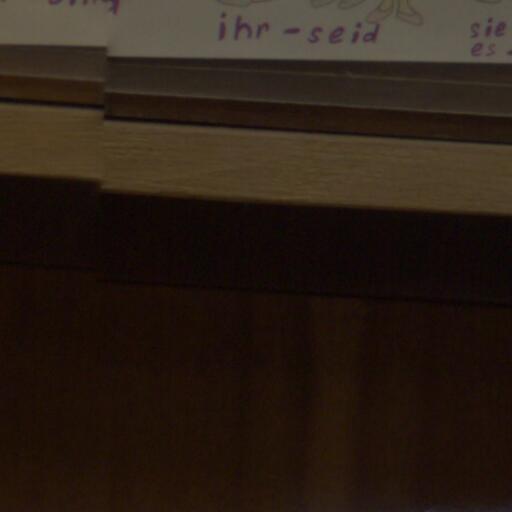 ihr - seid
sie
es -